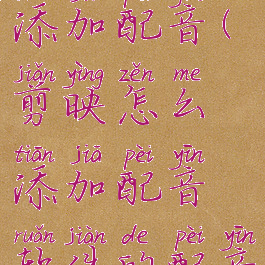 添加配音(
jiǎn yìng zěn me
剪映怎么
tiān jiā pèi yīn
添加配音
ruǎn jiàn de pèi yīn
软件的配音